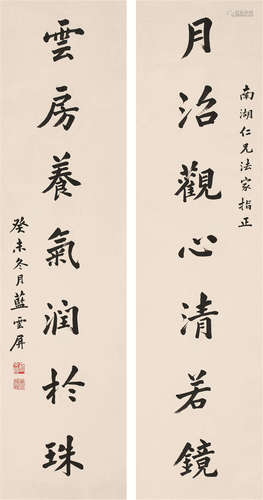 南湖仁兄法家指正
月沼觀心清若鏡
雲房養氣润於珠
癸未冬月藍雲屏